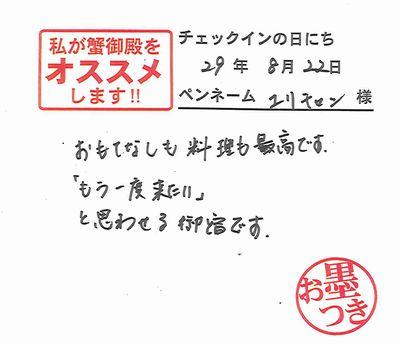 私が蟹御殿を
オススメ
します!!
チェックインの日にち
29年 8月 22日
ペンネーム ユリキセン 様
おもてなしも料理も最高です.
「もう一度来たい」
と思わせる御宿です.
お墨つき